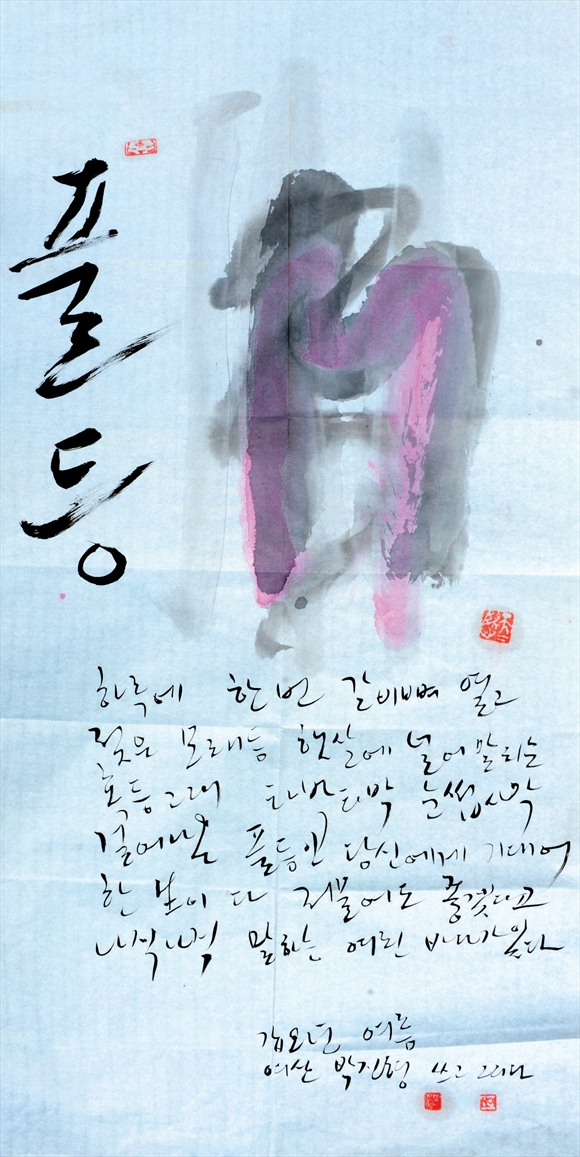 풀등
하루에 한 번 갈비뼈 열고
젖은 모래등 햇살에 널어 말리는
혹등고래 타박타박 눈썹사막
걸어나온 풀등인 당신에게 기대어
한 생이 다 저물어도 좋겠다고
나직나직 말하는 여린 바다가 있다
갑오년 여름
여산 박진형 쓰고 그리다